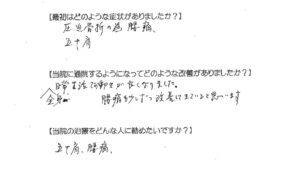 【最初はどのような症状がありましたか？】
圧迫骨折の為 腰痛、
五十肩
【当院に通院するようになってどのような改善がありましたか？】
日常生活で動きが良くなりました。
全身 腰痛も少しずつ改善してきていると思います
【当院の治療をどんな人に勧めたいですか？】
五十肩、腰痛、